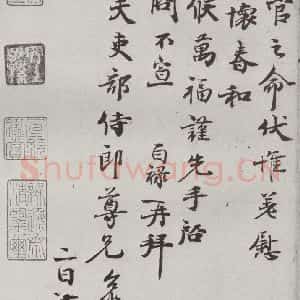 官之命伏惟善慰
懷春和
候萬福謹先手啓
問不宣 百祿再拜
夫吏部侍郎尊兄
二日
Shufawang.CN